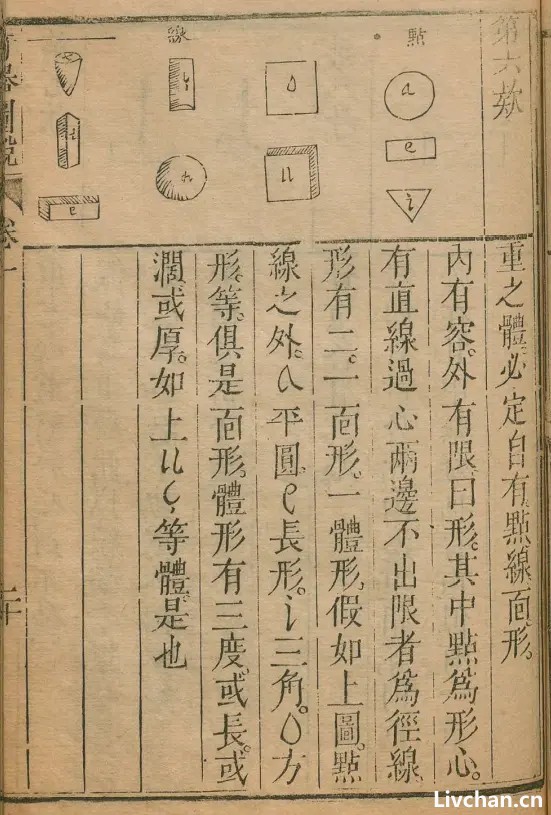 第六欵
點
a
e
i
線
o
u
重之體必定自有點線面形。
內有容。外有限。曰形。其中點爲形心。
有直線過心兩邊不出限者爲徑線。
形有二。一面形。一體形。假如上圖。點
線之外。a平圓。e長形。i三角。o方
形。等。俱是面形。體形有三度。或長。或
濶。或厚。如上u等體。是也
奇器圖說
卷一
二十
Livchan.cn